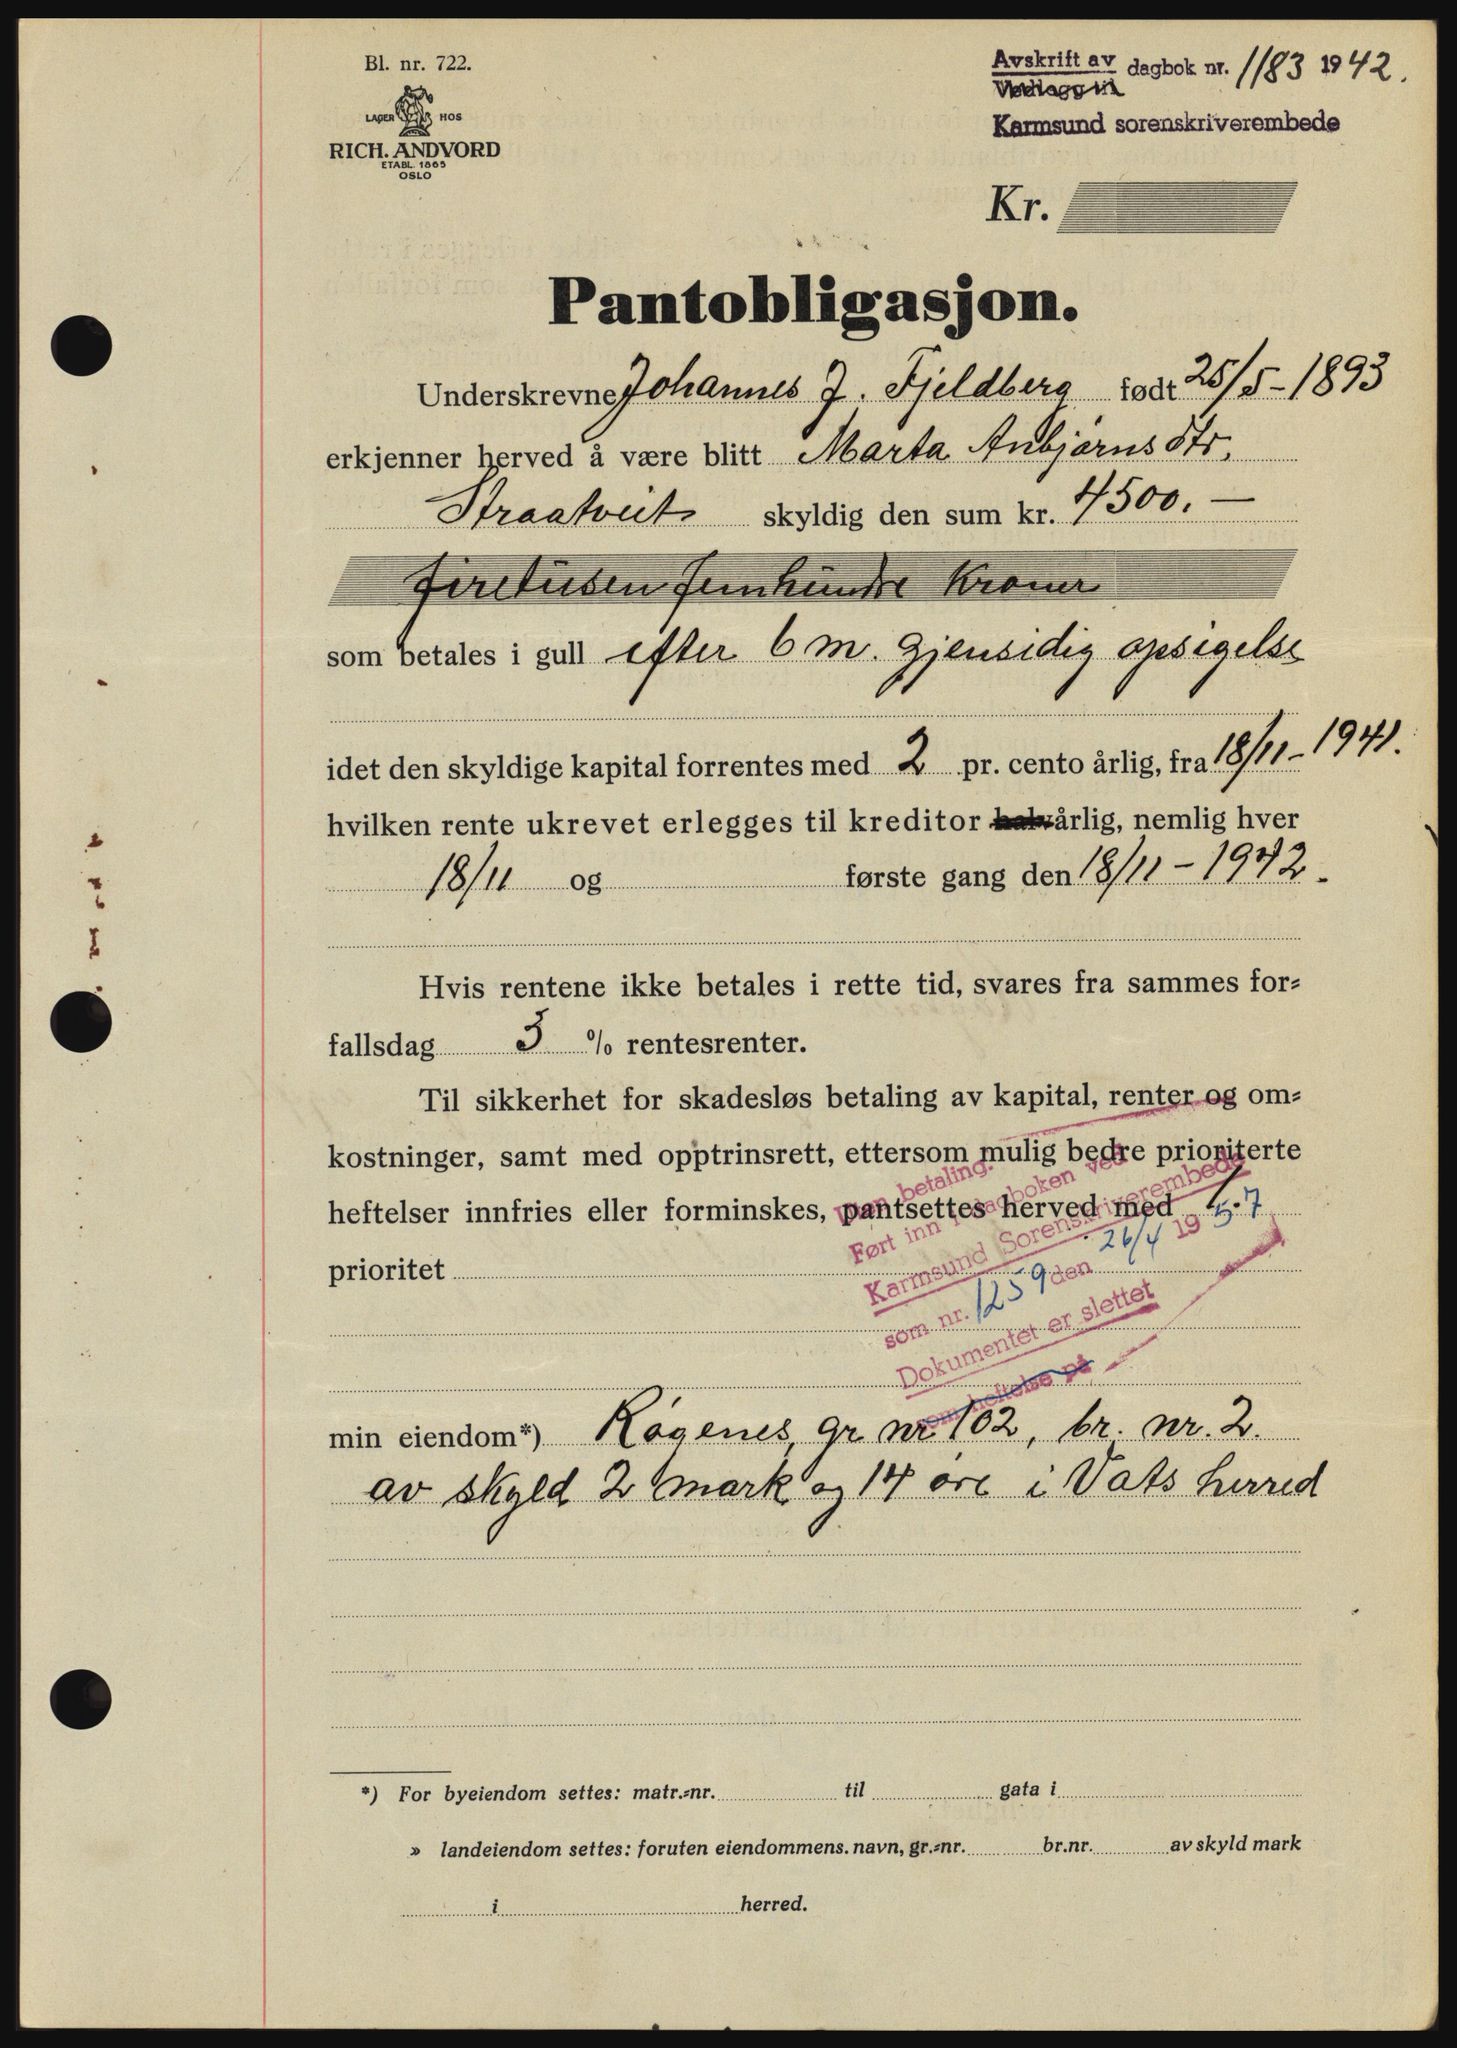 Bl. nr. 722.
LAGER HOS
RICH. ANDVORD
ETABL. 1865
OSLO
Avskrift av dagbok nr. 1183 1942.
Vedlegg til
Karmsund sorenskriverembede
Kr.
Pantobligasjon.
Underskrevne Johannes J. Fjeldberg født 25/5-1893
erkjenner herved å være blitt Marta Anbjørns dtr.
Straatveit skyldig den sum kr. 4500.—
firetusen femhundre Kroner
som betales i gull efter 6 m. gjensidig opsigelse
idet den skyldige kapital forrentes med 2 pr. cento årlig, fra 18/11-1941.
hvilken rente ukrevet erlegges til kreditor halvårlig, nemlig hver
18/11 og første gang den 18/11-1942.
Hvis rentene ikke betales i rette tid, svares fra sammes for=
fallsdag 3 % rentesrenter.
Til sikkerhet for skadesløs betaling av kapital, renter og om=
kostninger, samt med opptrinsrett, ettersom mulig bedre prioriterte
heftelser innfries eller forminskes, pantsettes herved med 1.
prioritet
Uten betaling.
Ført inn i dagboken ved
Karmsund Sorenskriverembede
som nr. 1259 den 26/4 1957
Dokumentet er slettet
som heftelse på
min eiendom*) Røgenes, gr. nr. 102, br. nr. 2.
av skyld 2 mark og 14 øre i Vats herred
*) For byeiendom settes: matr.=nr. til gata i
» landeiendom settes: foruten eiendommens navn, gr.=nr. br.nr. av skyld mark
i herred.